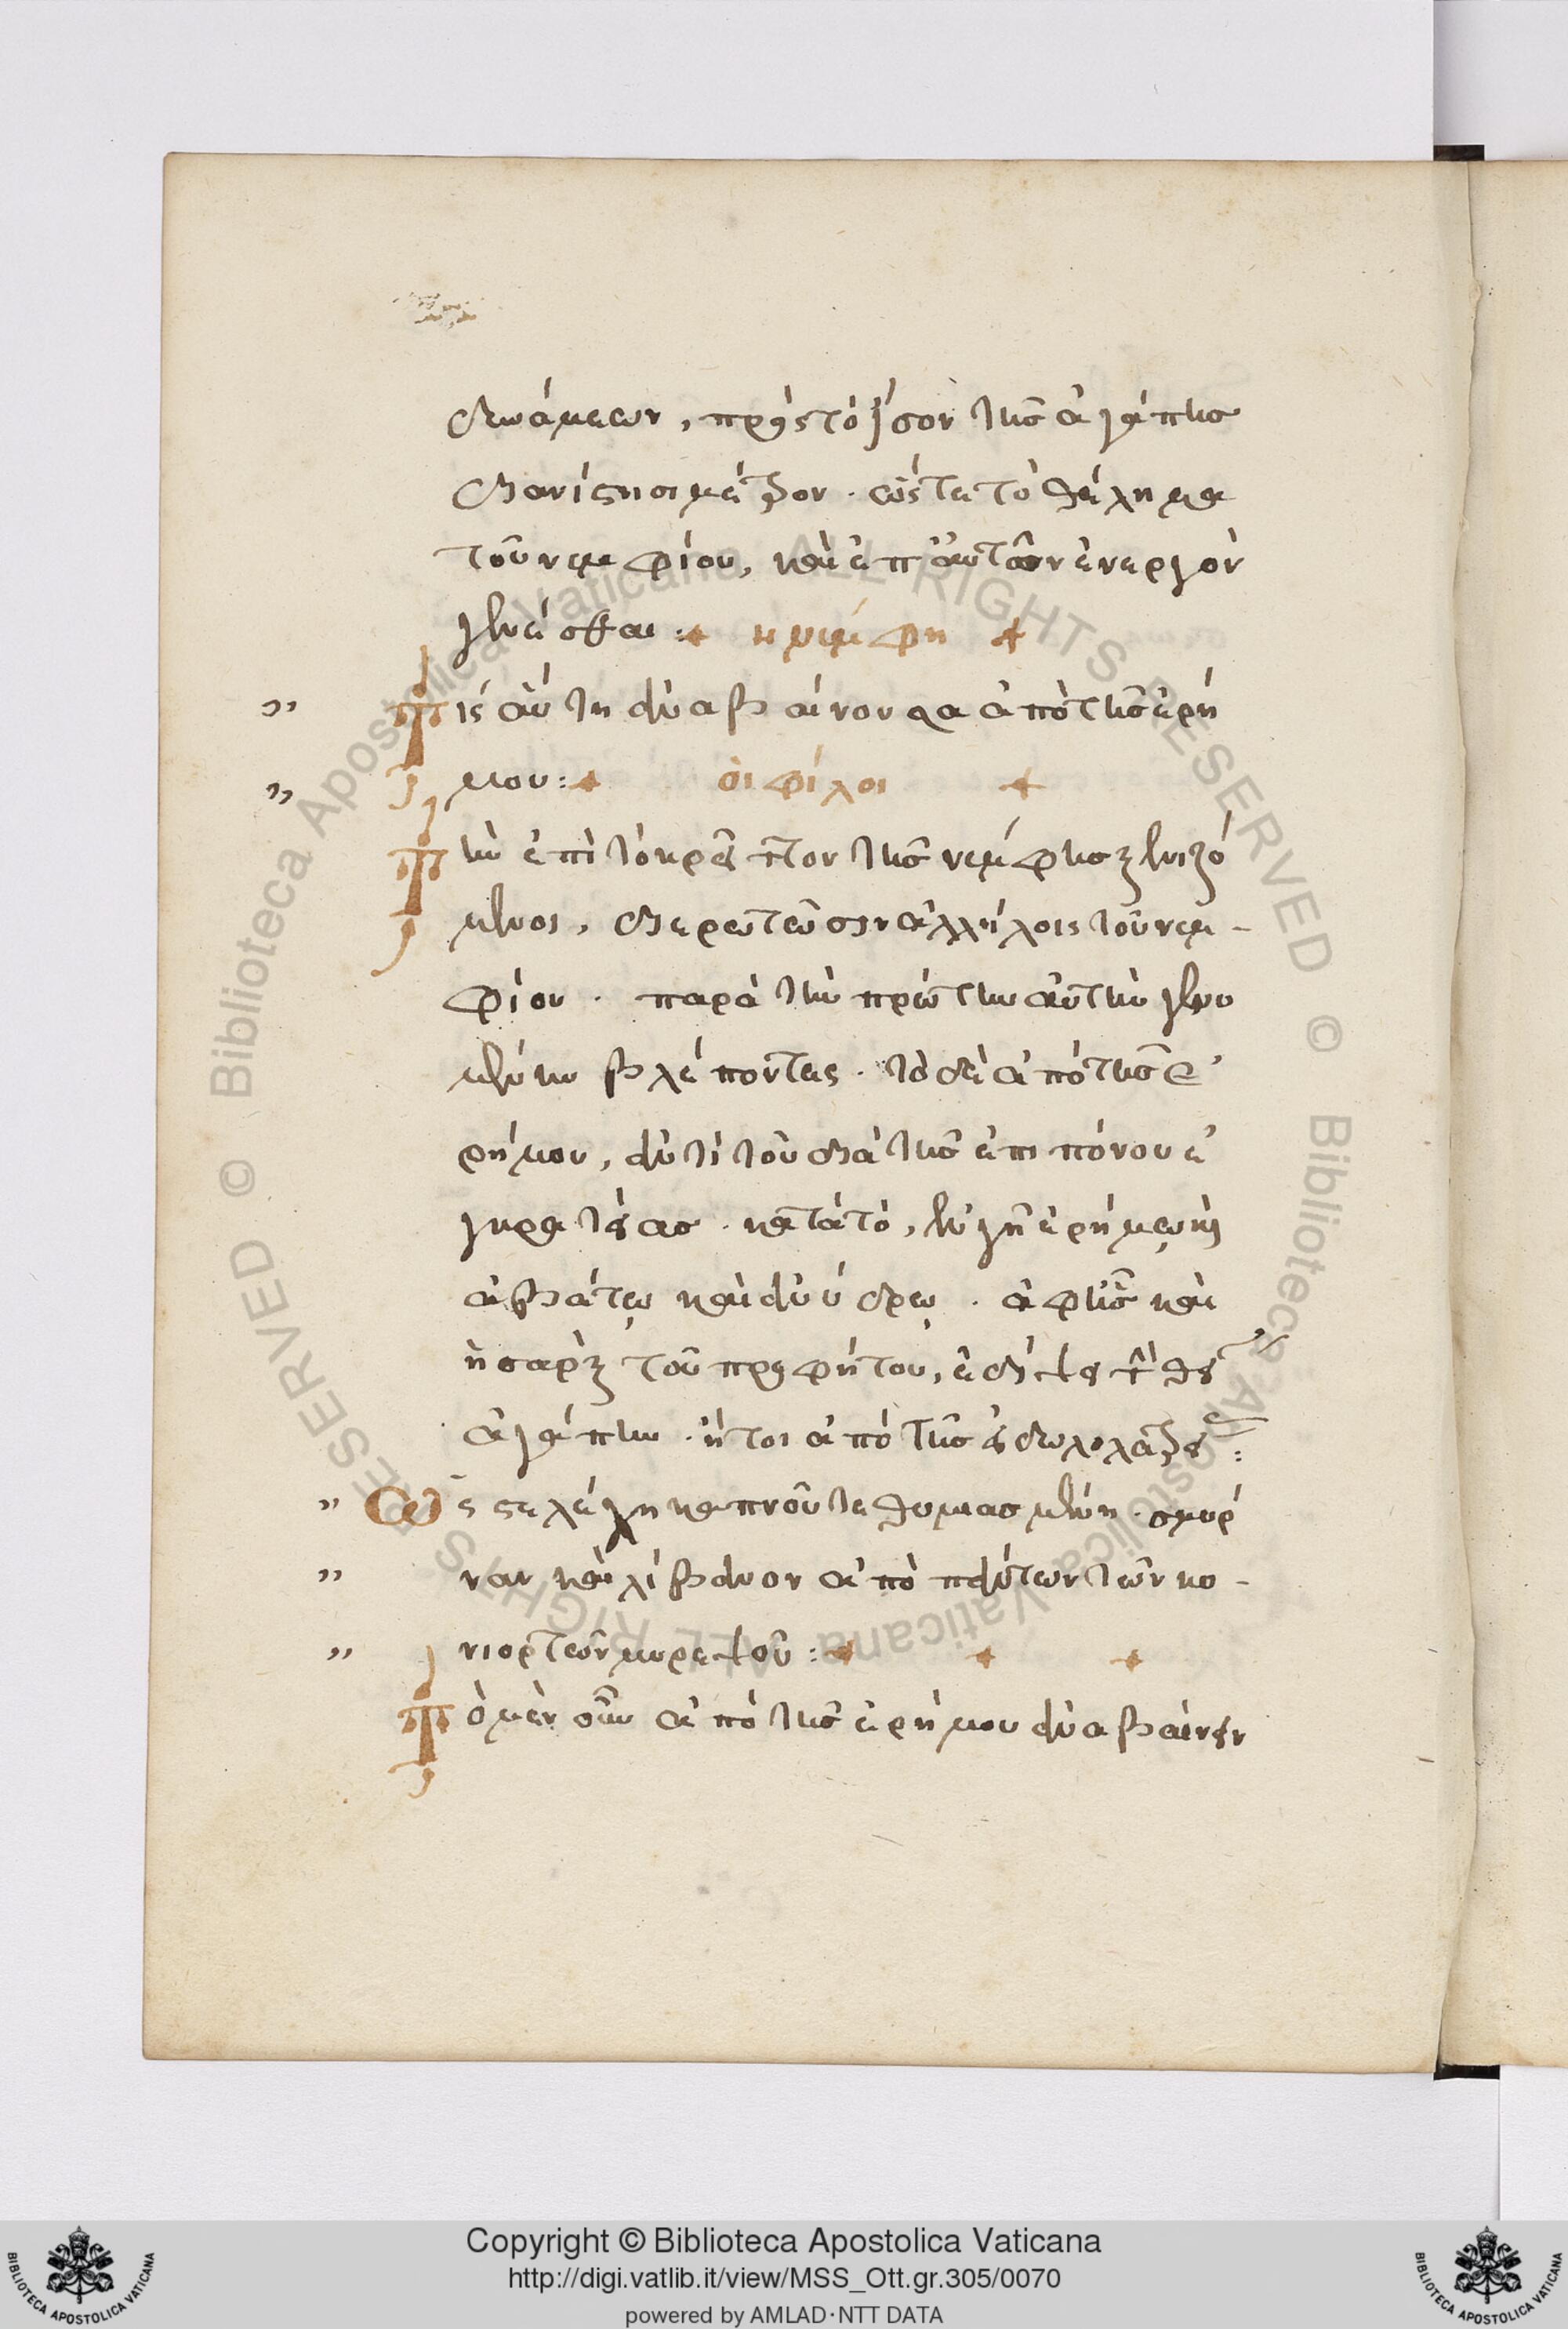 δυνάμεων, πρὸς τὸ ἴσον τῆς ἀγάπης
διανίστησι μέτρον. ὥστε τὸ θέλημα
τοῦ νυμφίου, καὶ ἐπ' αὐτῶν ἐνεργὸν
γενέσθαι :+ ἡ νύμφη +
" Τίς αὕτη ἀναβαίνουσα ἀπὸ τῆς ἐρή
" μου :+ οἱ φίλοι +
Τὴν ἐπὶ τὸ κρεῖττον τῆς νύμφης ξενιζό
μενοι, διερωτῶσιν ἀλλήλοις τοῦ νυμ-
φίου. παρὰ τὴν πρώτην αὐτὴν γενο
μένην βλέποντες. τὸ δὲ ἀπὸ τῆς ἐ
ρήμου, ἀντὶ τοῦ διὰ τῆς ἐπιπόνου ἐ
γκρατείας. κατὰ τὸ, ἐν γῇ ἐρήμῳ καὶ
ἀβάτῳ καὶ ἀνύδρῳ. ἀφ' ἧς καὶ
ἡ σὰρξ τοῦ προφήτου, ἐδίψα τὴν θείαν
ἀγάπην. ἤτοι ἀπὸ τῆς εἰδωλολατρείας :
" Ὡς στελέχη καπνοῦ τεθυμιασμένη. σμύρ
" ναν καὶ λίβανον ἀπὸ πάντων τῶν κο-
" νιορτῶν μυρεψοῦ :+ + +
Τὸ μὲν οὖν ἀπὸ τῆς ἐρήμου ἀναβαίνειν
Copyright © Biblioteca Apostolica Vaticana
http://digi.vatlib.it/view/MSS_Ott.gr.305/0070
powered by AMLAD·NTT DATA